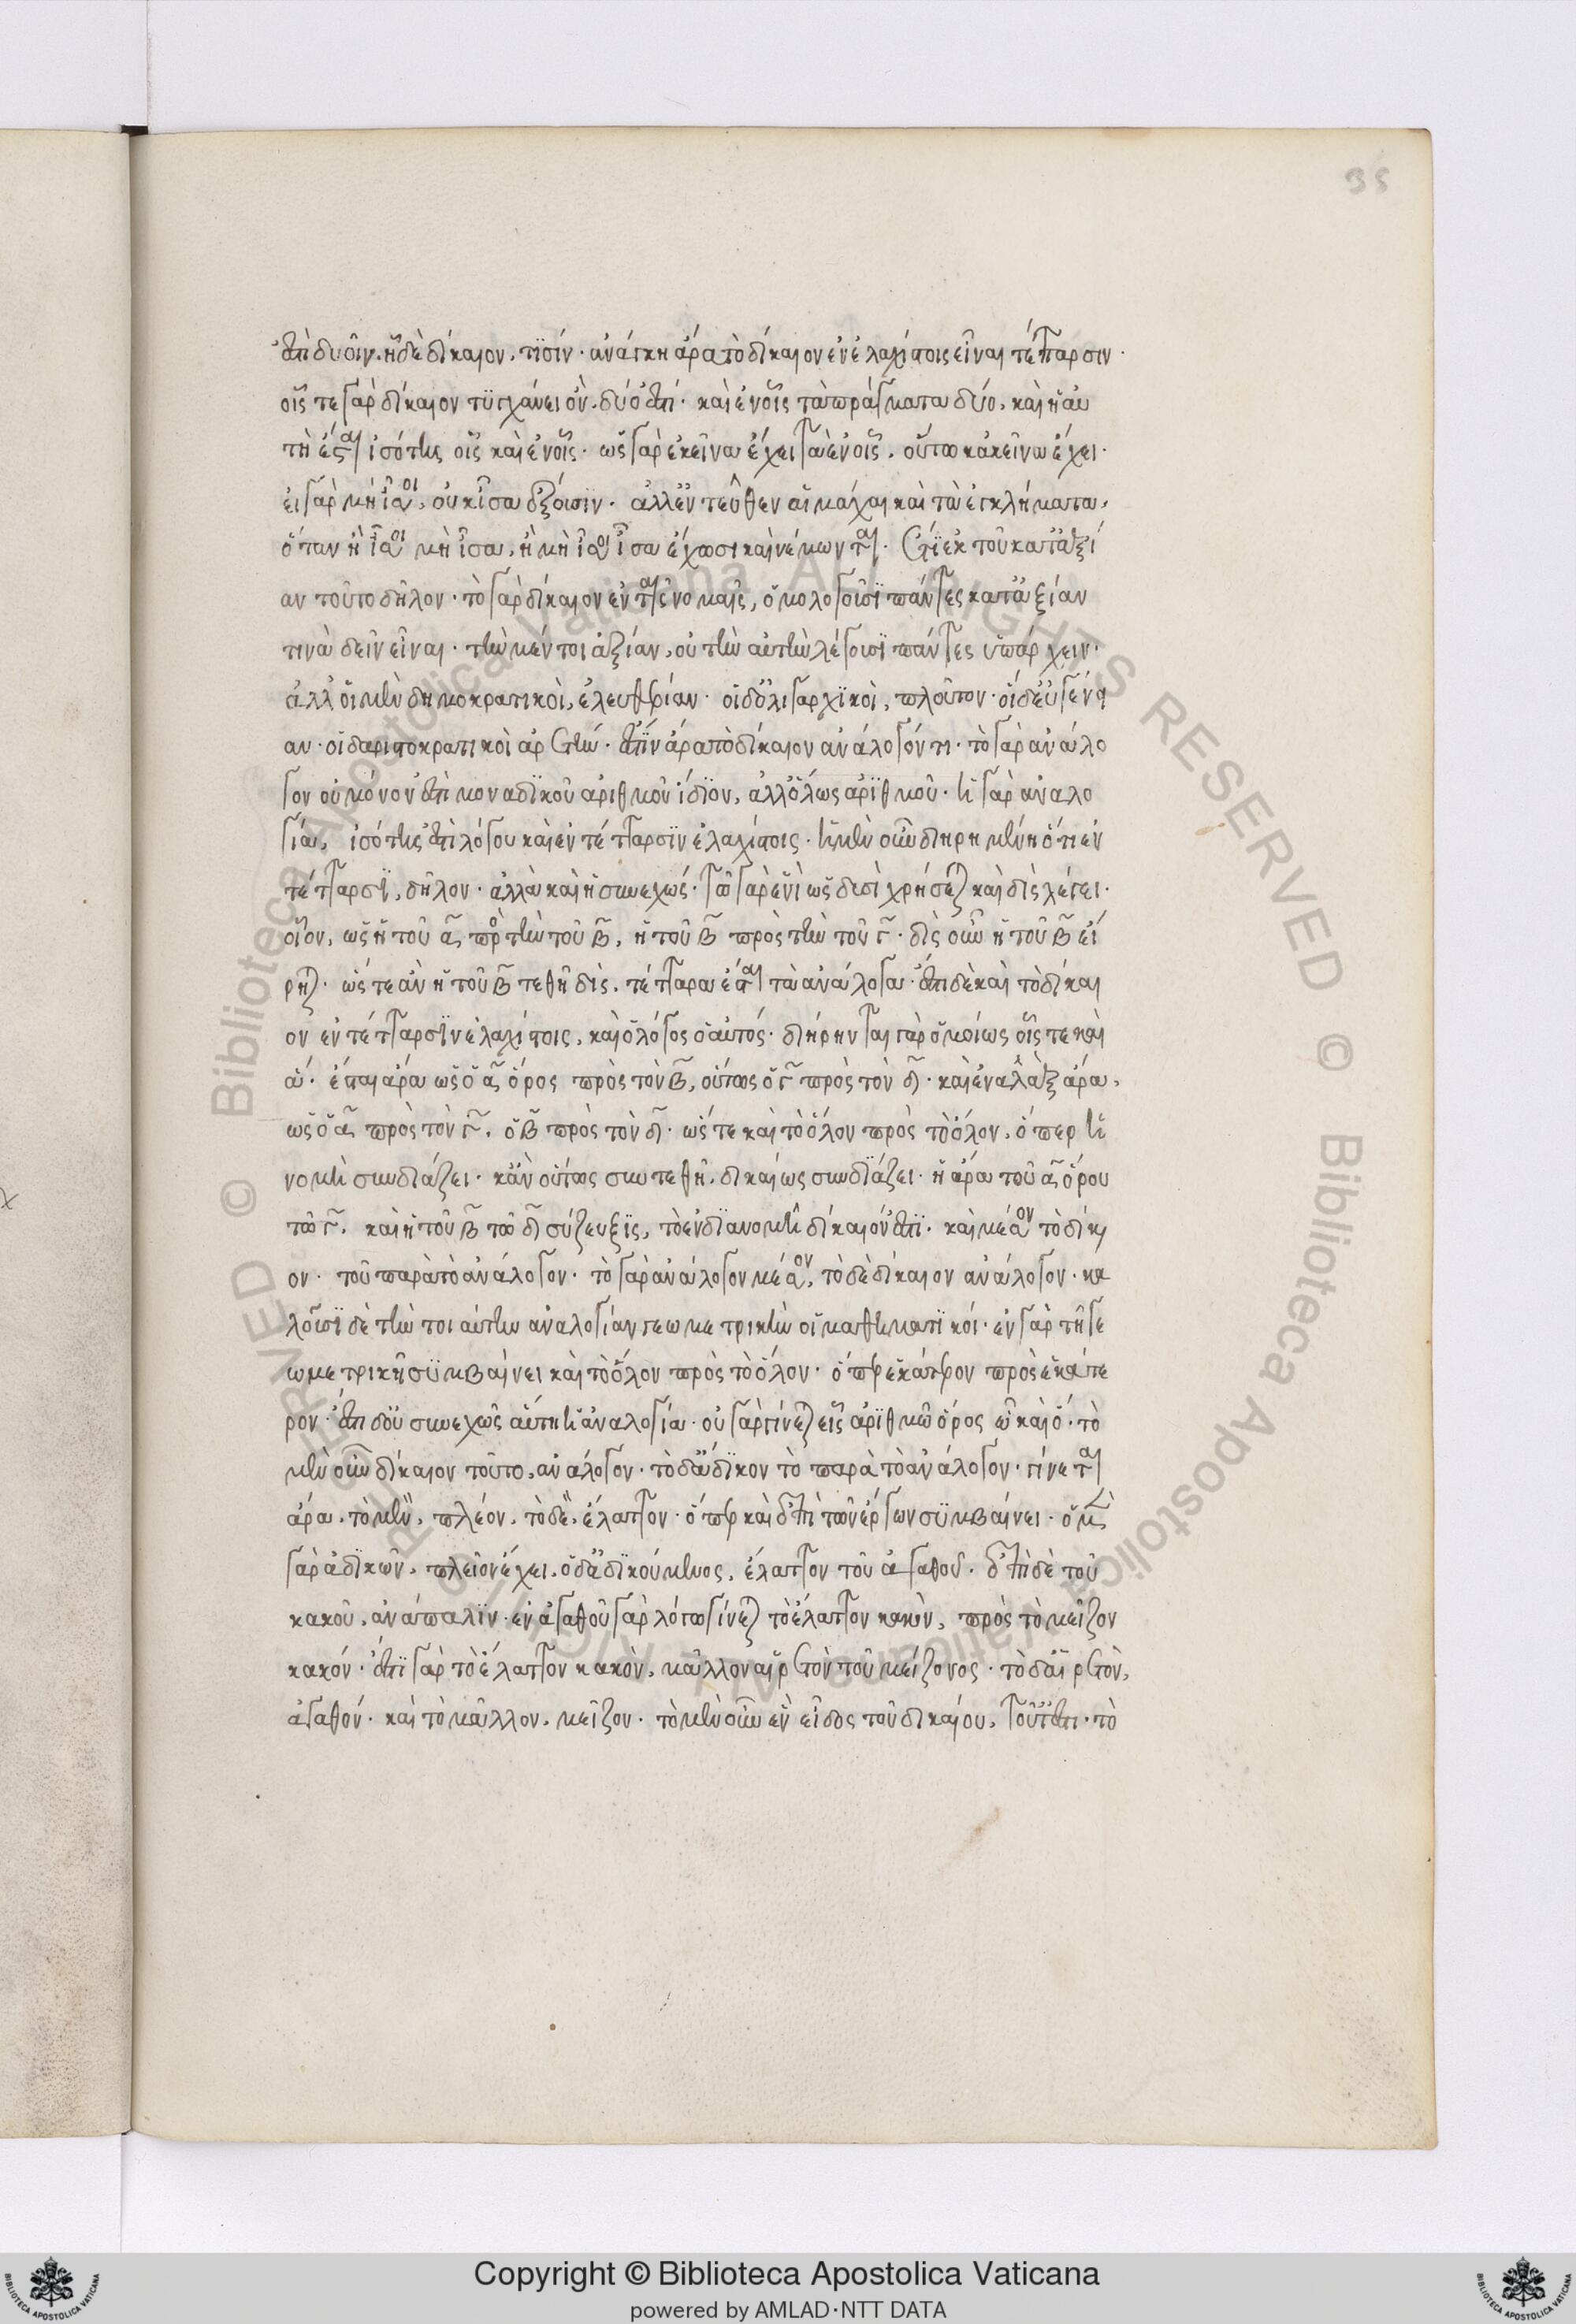 35
ἐστὶ δυοῖν. ἧ δὲ δίκαιον, τισίν· ἀνάγκη ἄρα τὸ δίκαιον ἐν ἐλαχίστοις εἶναι τέτταρσιν·
οἷς τε γὰρ δίκαιον τυγχάνει ὄν, δύο ἐστί· καὶ ἐν οἷς τὰ πράγματα δύο, καὶ ἡ αὐ
τὴ ἔσται ἰσότης οἷς καὶ ἐν οἷς· ὡς γὰρ ἐκεῖνα ἔχει τὰ ἐν οἷς, οὕτω κἀκεῖνα ἔχει·
εἰ γὰρ μὴ ἴσοι, οὐκ ἴσα ἕξουσιν· ἀλλ' ἐντεῦθεν αἱ μάχαι καὶ τὰ ἐγκλήματα,
ὅταν ἢ ἴσοι μὴ ἴσα, ἢ μὴ ἴσοι ἴσα ἔχωσι καὶ νέμωνται. ἔτι ἐκ τοῦ κατ' ἀξί
αν τοῦτο δῆλον· τὸ γὰρ δίκαιον ἐν ταῖς νομαῖς, ὁμολογοῦσι πάντες κατ' ἀξίαν
τινὰ δεῖν εἶναι· τὴν μέντοι ἀξίαν, οὐ τὴν αὐτὴν λέγουσι πάντες ὑπάρχειν·
ἀλλ' οἱ μὲν δημοκρατικοὶ, ἐλευθερίαν· οἱ δ' ὀλιγαρχικοὶ, πλοῦτον· οἱ δ' εὐγένει
αν· οἱ δ' ἀριστοκρατικοὶ ἀρετήν· ἔστιν ἄρα τὸ δίκαιον ἀνάλογόν τι· τὸ γὰρ ἀνάλο
γον οὐ μόνον ἐστὶ μοναδικοῦ ἀριθμοῦ ἴδιον, ἀλλ' ὅλως ἀριθμοῦ· ἡ γὰρ ἀναλο
γία, ἰσότης ἐστὶ λόγου καὶ ἐν τέτταρσιν ἐλαχίστοις· ἡ μὲν οὖν διῃρημένη ὅτι ἐν
τέτταρσι, δῆλον· ἀλλὰ καὶ ἡ συνεχής· τῷ γὰρ ἑνὶ ὡς δυσὶ χρήσεται καὶ δὶς λέγει·
οἷον, ὡς ἡ τοῦ α πρὸς τὴν τοῦ β, ἡ τοῦ β πρὸς τὴν τοῦ γ· δὶς οὖν ἡ τοῦ β εἴ
ρηται· ὥστε ἂν ἡ τοῦ β τεθῇ δὶς, τέτταρα ἔσται τὰ ἀνάλογα· ἔστι δὲ καὶ τὸ δίκαι
ον ἐν τέτταρσιν ἐλαχίστοις, καὶ ὁ λόγος ὁ αὐτός· διῄρηνται γὰρ ὁμοίως οἷς τε καὶ
ἅ· ἔσται ἄρα ὡς ὁ α ὅρος πρὸς τὸν β, οὕτως ὁ γ πρὸς τὸν δ· καὶ ἐναλλὰξ ἄρα,
ὡς ὁ α πρὸς τὸν γ, ὁ β πρὸς τὸν δ· ὥστε καὶ τὸ ὅλον πρὸς τὸ ὅλον, ὅπερ ἡ
νομὴ συνδυάζει· κἂν οὕτως συντεθῇ, δικαίως συνδυάζει· ἡ ἄρα τοῦ α ὅρου
τῷ γ, καὶ ἡ τοῦ β τῷ δ σύζευξις, τὸ ἐν διανομῇ δίκαιόν ἐστι· καὶ μέσον τὸ δίκαι
ον· τοῦ παρὰ τὸ ἀνάλογον· τὸ γὰρ ἀνάλογον μέσον, τὸ δὲ δίκαιον ἀνάλογον· κα
λοῦσι δὲ τὴν τοιαύτην ἀναλογίαν γεωμετρικὴν οἱ μαθηματικοί· ἐν γὰρ τῇ γε
ωμετρικῇ συμβαίνει καὶ τὸ ὅλον πρὸς τὸ ὅλον· ὅπερ ἑκάτερον πρὸς ἑκάτε
ρον· ἔστι δ' οὐ συνεχὴς αὕτη ἡ ἀναλογία· οὐ γὰρ γίνεται εἷς ἀριθμῷ ὅρος ᾧ καὶ ὅ· τὸ
μὲν οὖν δίκαιον τοῦτο, ἀνάλογον· τὸ δ' ἄδικον τὸ παρὰ τὸ ἀνάλογον· γίνεται
ἄρα, τὸ μὲν, πλέον, τὸ δὲ, ἔλαττον· ὅπερ καὶ ἐπὶ τῶν ἔργων συμβαίνει· ὁ μὲν
γὰρ ἀδικῶν, πλεῖον ἔχει, ὁ δ' ἀδικούμενος, ἔλαττον τοῦ ἀγαθοῦ. ἐπὶ δὲ τοῦ
κακοῦ, ἀνάπαλιν· ἐν ἀγαθοῦ γὰρ λόγῳ γίνεται τὸ ἔλαττον κακὸν, πρὸς τὸ μεῖζον
κακόν· ἔστι γὰρ τὸ ἔλαττον κακὸν, μᾶλλον αἱρετὸν τοῦ μείζονος· τὸ δ' αἱρετὸν,
ἀγαθόν· καὶ τὸ μᾶλλον, μεῖζον· τὸ μὲν οὖν ἓν εἶδος τοῦ δικαίου, τοῦτ' ἔστι· τὸ
Copyright © Biblioteca Apostolica Vaticana
powered by AMLAD·NTT DATA